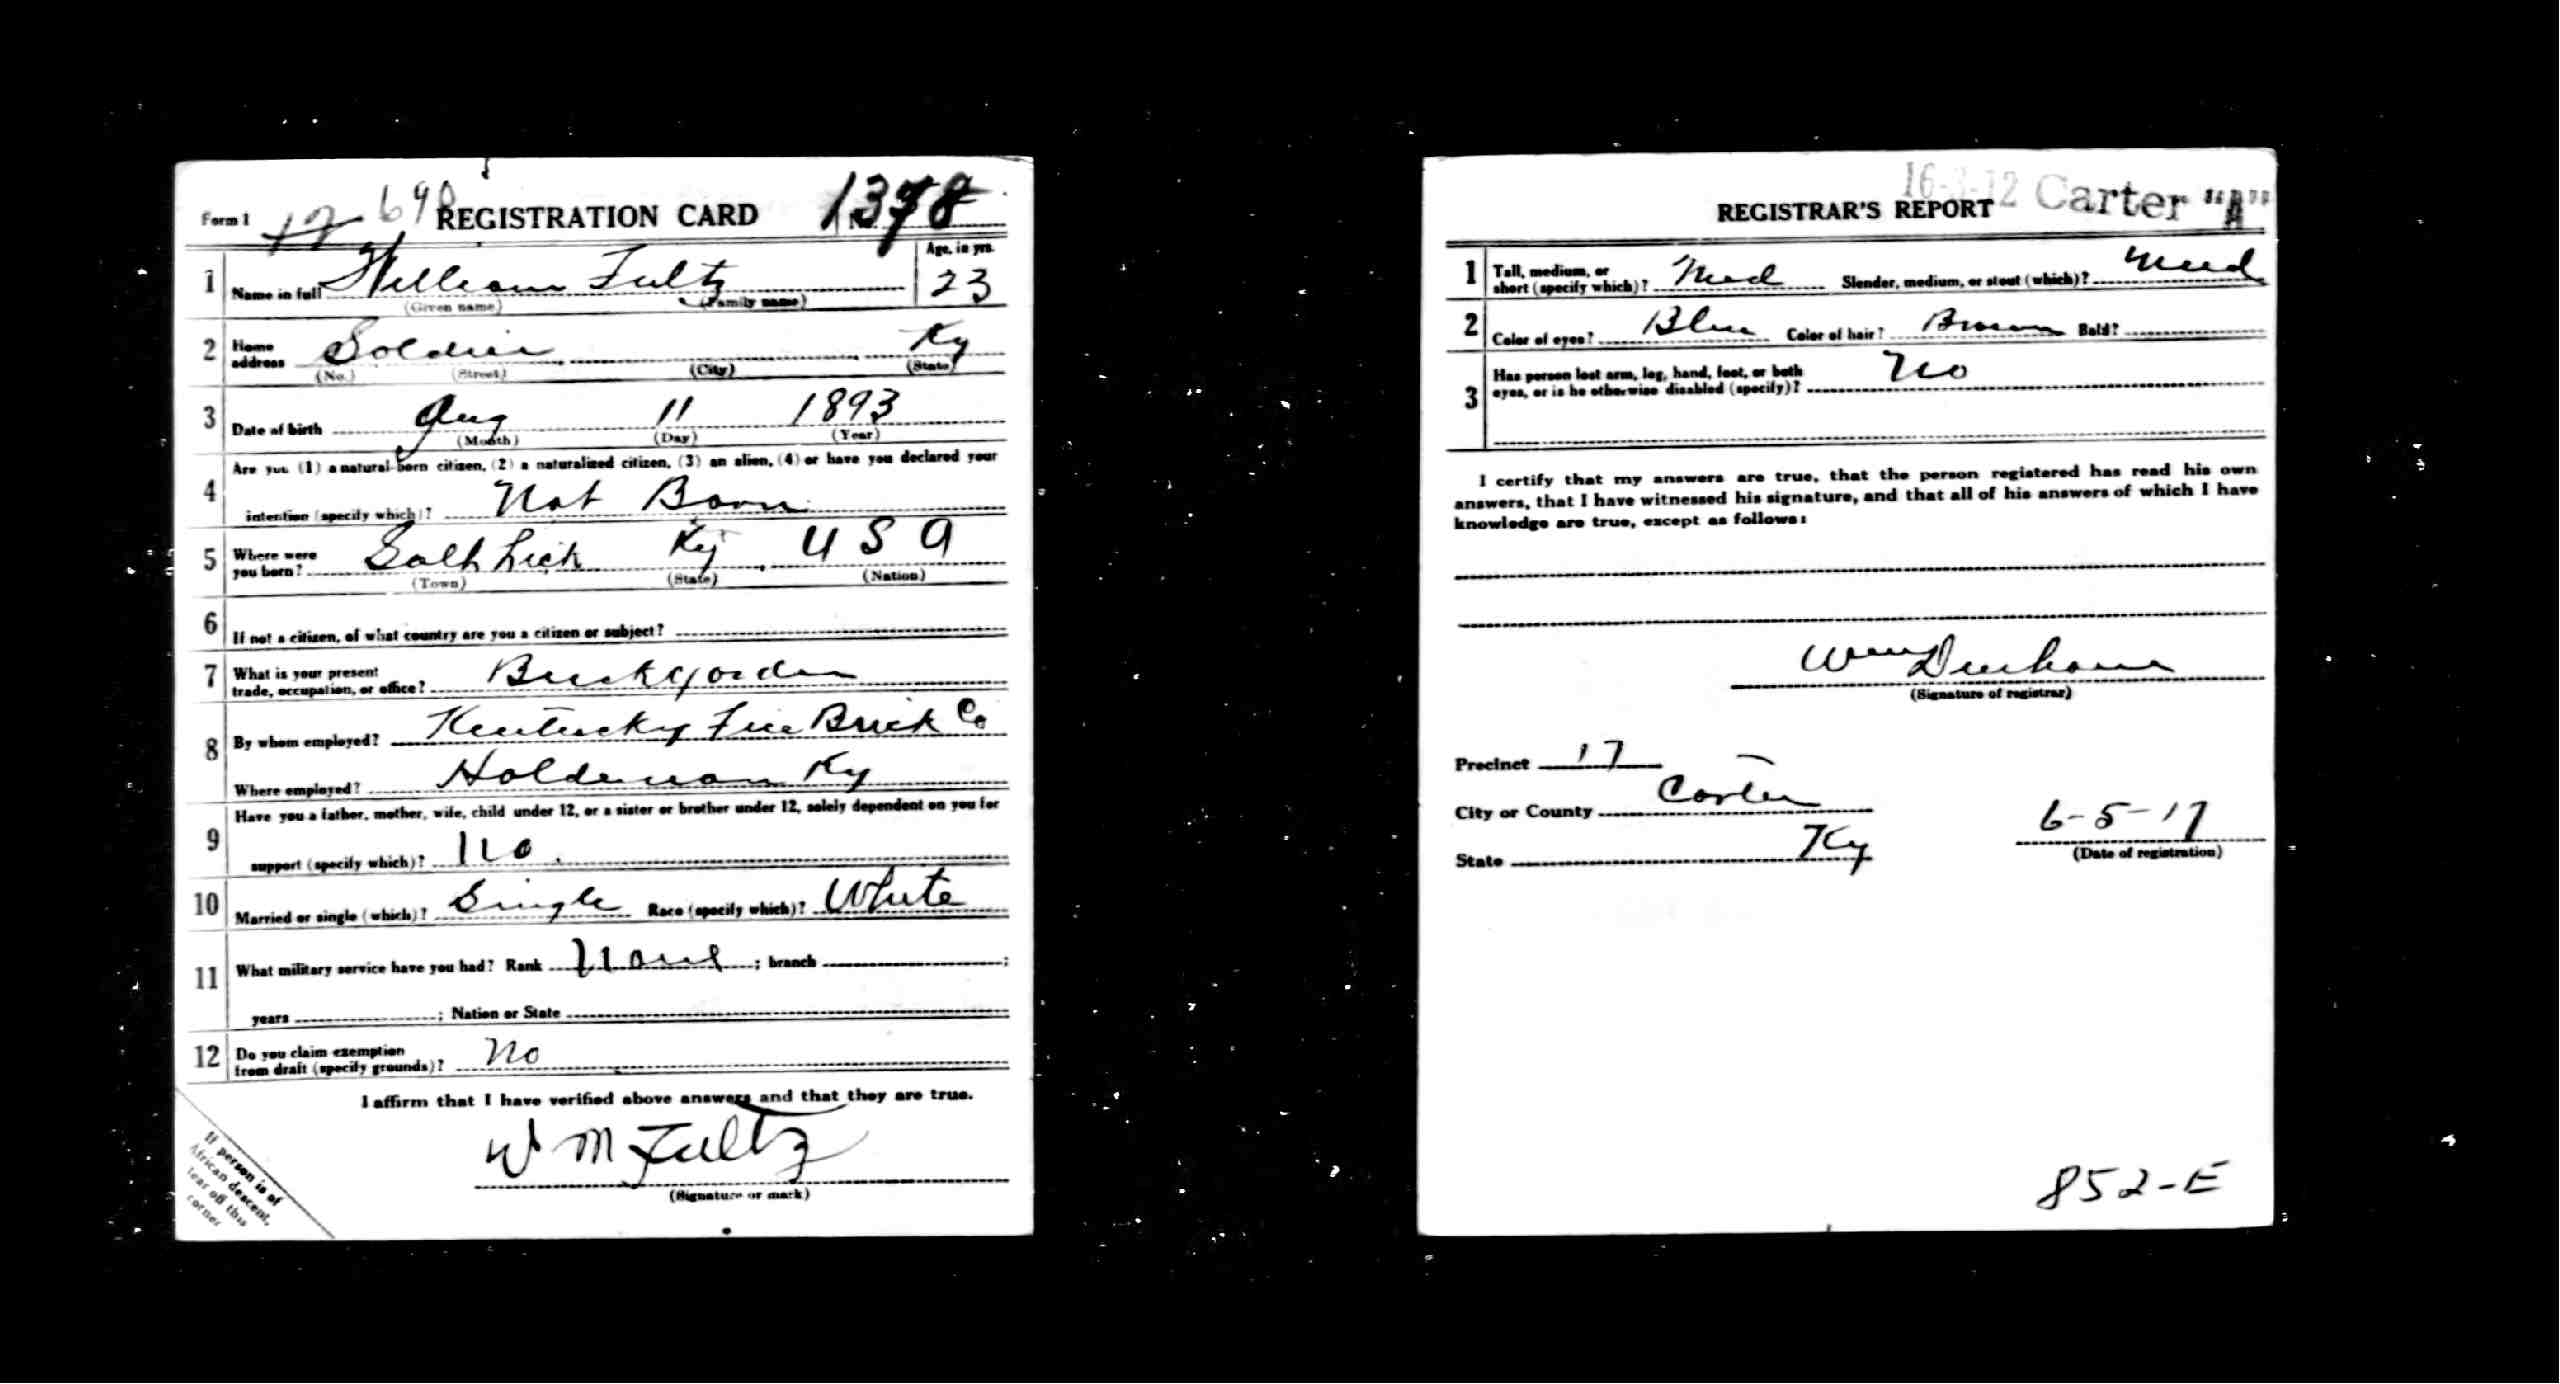 Form 1 12 690 REGISTRATION CARD No. 1378
1 Name in full William Fultz Age, in yrs. 23
(Given name) (Family name)
2 Home address Soldier Ky
(No.) (Street) (City) (State)
3 Date of birth Aug 11 1893
(Month) (Day) (Year)
4 Are you (1) a natural-born citizen, (2) a naturalized citizen, (3) an alien, (4) or have you declared your
intention (specify which)? Nat Born
5 Where were you born? Salt Lick Ky U S A
(Town) (State) (Nation)
6 If not a citizen, of what country are you a citizen or subject?
7 What is your present
trade, occupation, or office?
8 By whom employed? Kentucky Fire Brick Co
Where employed? Haldeman Ky
9 Have you a father, mother, wife, child under 12, or a sister or brother under 12, solely dependent on you for
support (specify which)? No
10 Married or single (which)? Single Race (specify which)? White
11 What military service have you had? Rank None ; branch ;
years ; Nation or State
12 Do you claim exemption
from draft (specify grounds)? No
I affirm that I have verified above answers and that they are true.
W M Fultz
(Signature or mark)
If person is of
African descent,
tear off this
corner
16-3-12 Carter "A"
REGISTRAR'S REPORT
1 Tall, medium, or
short (specify which)? Med Slender, medium, or stout (which)? Med
2 Color of eyes? Blue Color of hair? Brown Bald?
3 Has person lost arm, leg, hand, foot, or both
eyes, or is he otherwise disabled (specify)? No
I certify that my answers are true, that the person registered has read his own
answers, that I have witnessed his signature, and that all of his answers of which I have
knowledge are true, except as follows:
Wm Durham
(Signature of registrar)
Precinct 17
City or County Carter
State Ky
6-5-17
(Date of registration)
852-E